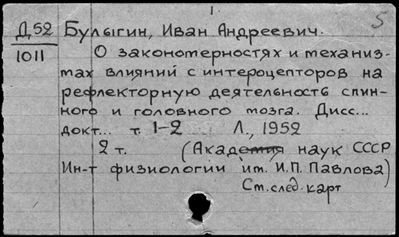 1.
5
Д52 Булыгин, Иван Андреевич.
1011 О закономерностях и механиз-
мах влияний с интероцепторов на
рефлекторную деятельность спин-
ного и головного мозга. Дисс...
докт... т. 1-2 Л., 1952
2 т. (Академия наук СССР
Ин-т физиологии им. И.П. Павлова)
См. след. карт